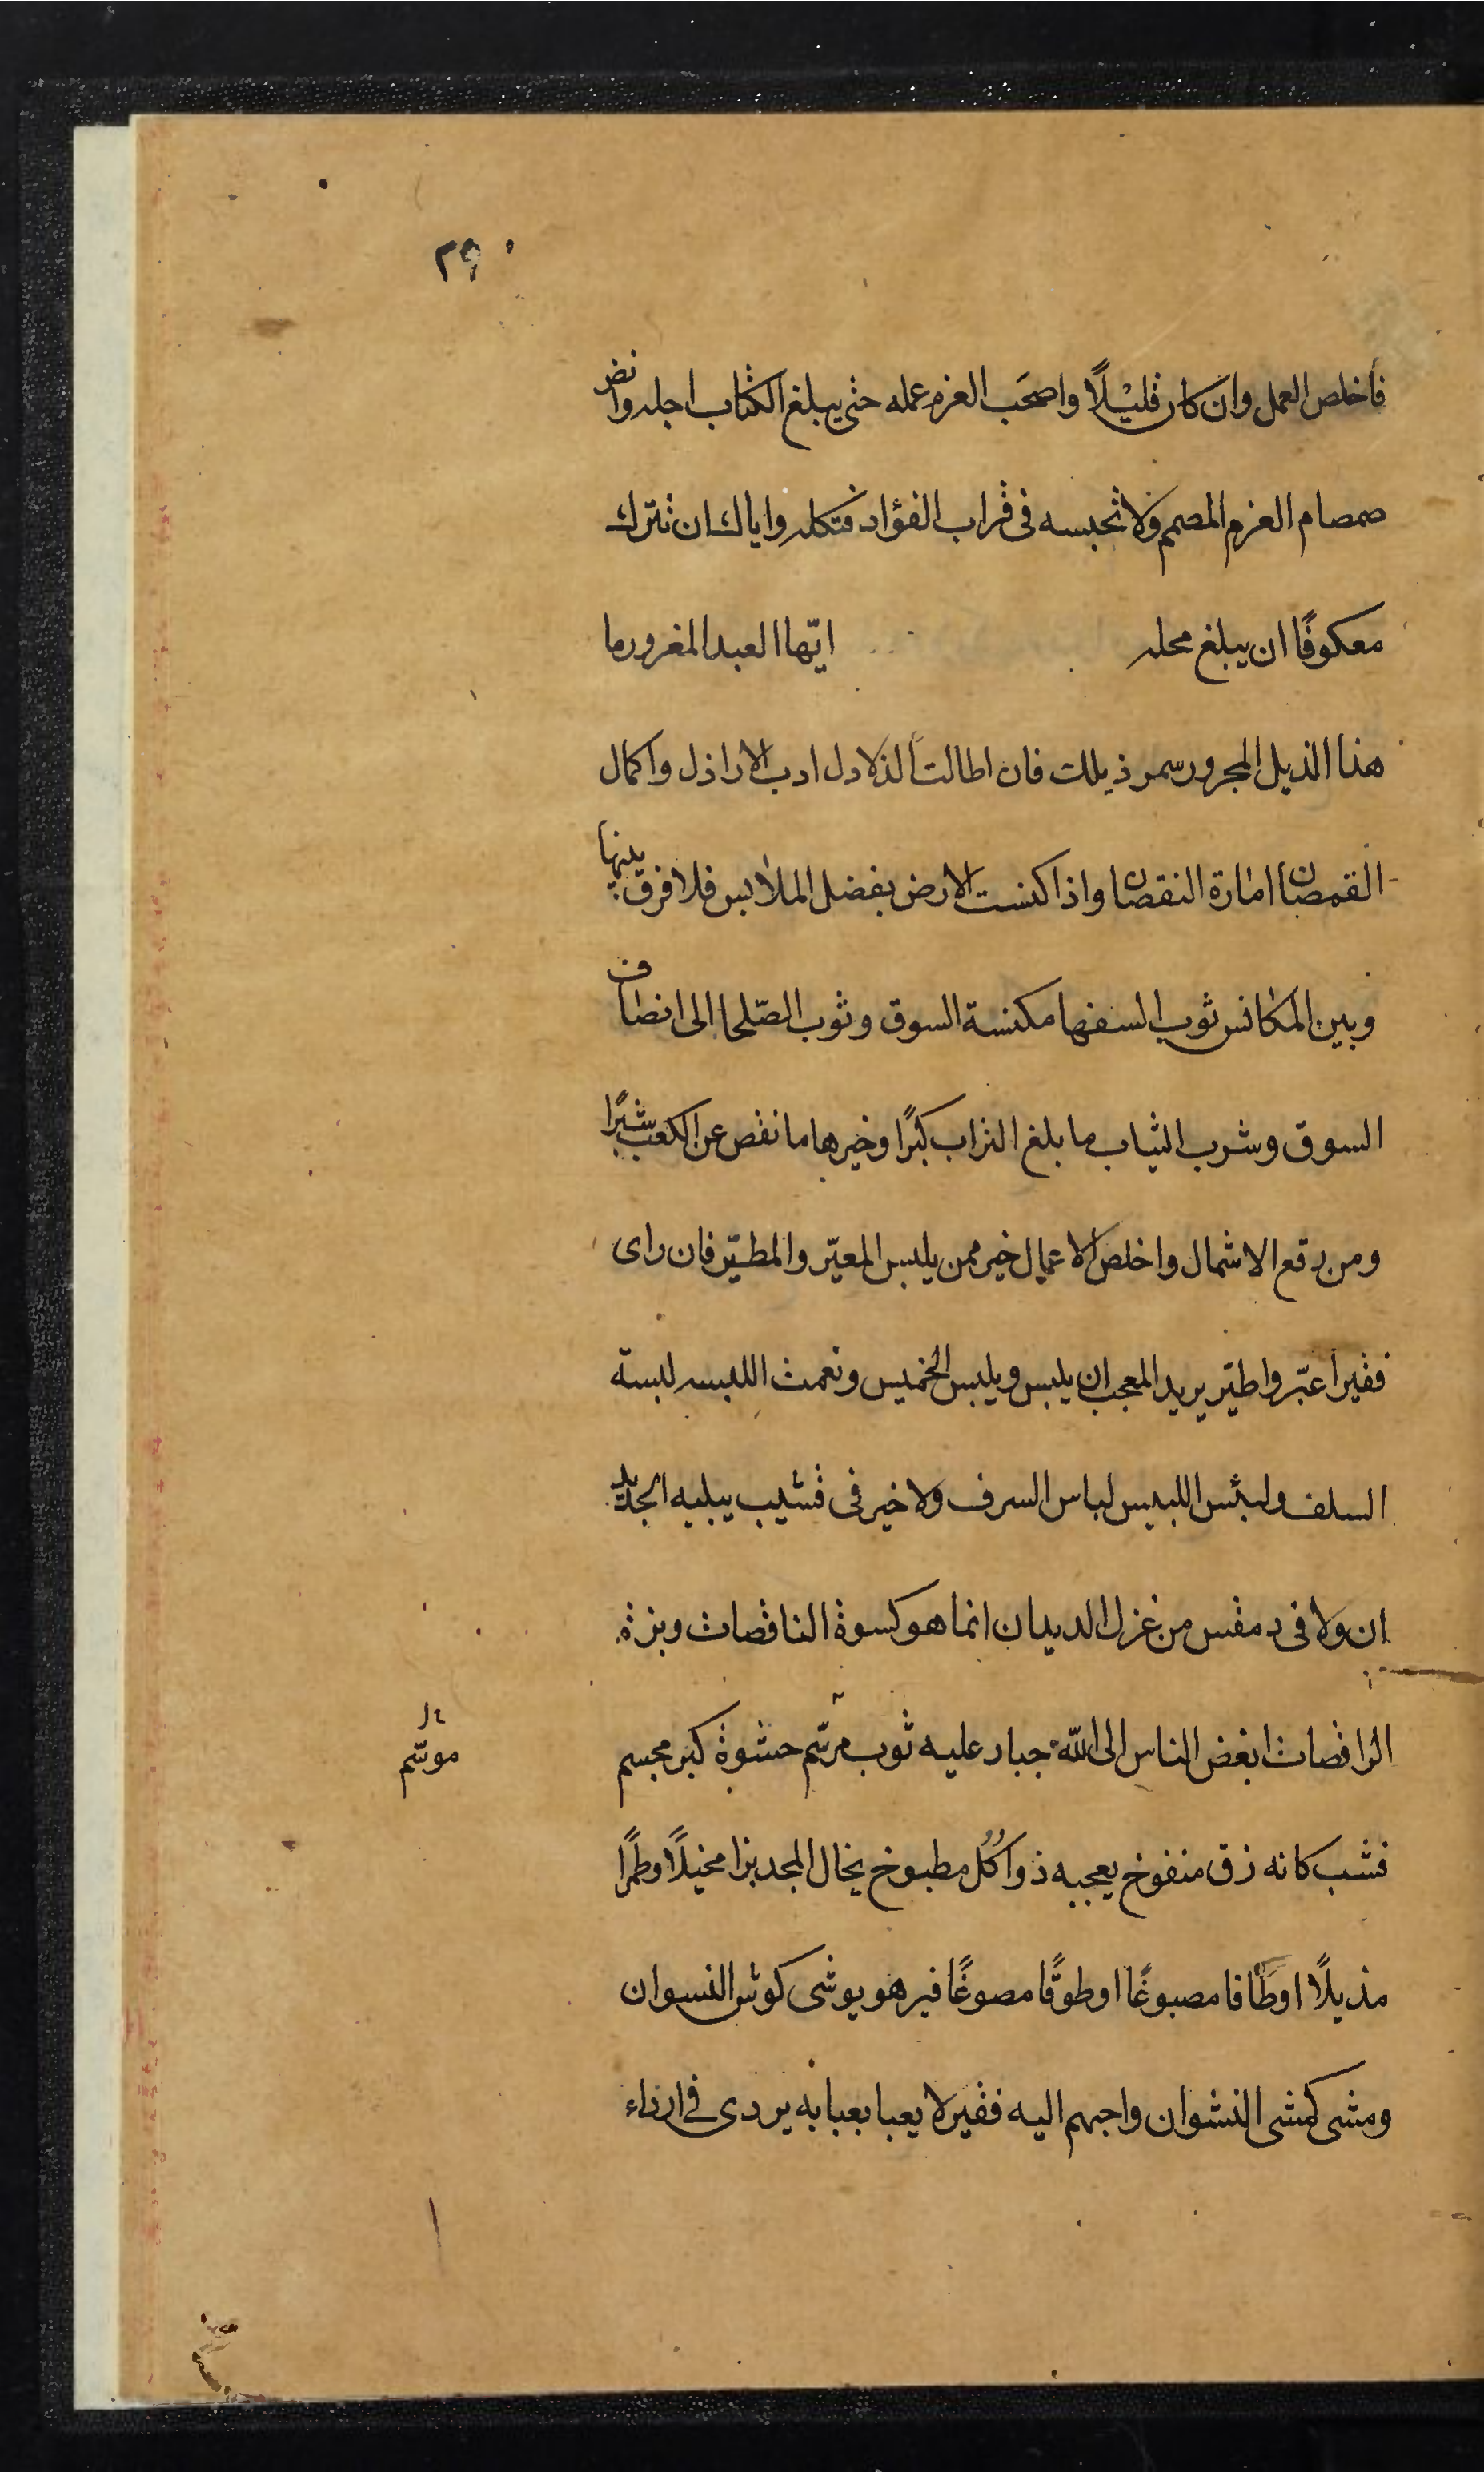 ٢٩
فأخلص العمل وان كان قليلًا واصحَب العزم عمله حتى يبلغ الكتاب اجله وانض
صمصام العزم المصمم ولا تحبسه في قراب الفؤاد فتكله واياك ان تترك
معكوفًا ان يبلغ محله ايّها العبد المغرور ما
هذا الذيل المجرور سمر ذيلك فان اطالت الذلادل ادب الاراذل واكمال
القمصان امارة النقصان واذا كنست الارض بفضل الملابس فلا فرق بينها
وبين المكانس ثوب السفها مكنسة السوق وثوب الصّلحا الى انصاف
السوق وشرب الثياب ما بلغ التراب كبرًا وخيرها ما نقص عن الكعب شبرًا
ومن رقع الاشمال واخلص الاعمال خير ممن يلبس المعيّر والمطيّر فان راى
فقيرا عبّر واطيّر يريد المعجب ان يلبس ويلبس الخميس ونعمت اللبسه لبسة
السلف ولبئس اللبيس لباس السرف ولا خير في قشيب يبليه الجديد
ان ولا في دمقس من غزل الديدان انما هو كسوة الناقصات وبزة
الراقصات ابغض الناس الى الله جبار عليه ثوب مرسّم حشوة كبر مجسم
موسّم
فشب كانه زق منفوخ يعجبه ذواكل مطبوخ يخال المجد بزا مخيلًا وطمرًا
مذيلًا اوطَاقا مصبوغًا اوطوقًا مصوغًا فيرهو يوشى كوشى النسوان
ومشى كمشى النشوان واجبهم اليه فقير لا يعبا بعبابه يردى في ارداء